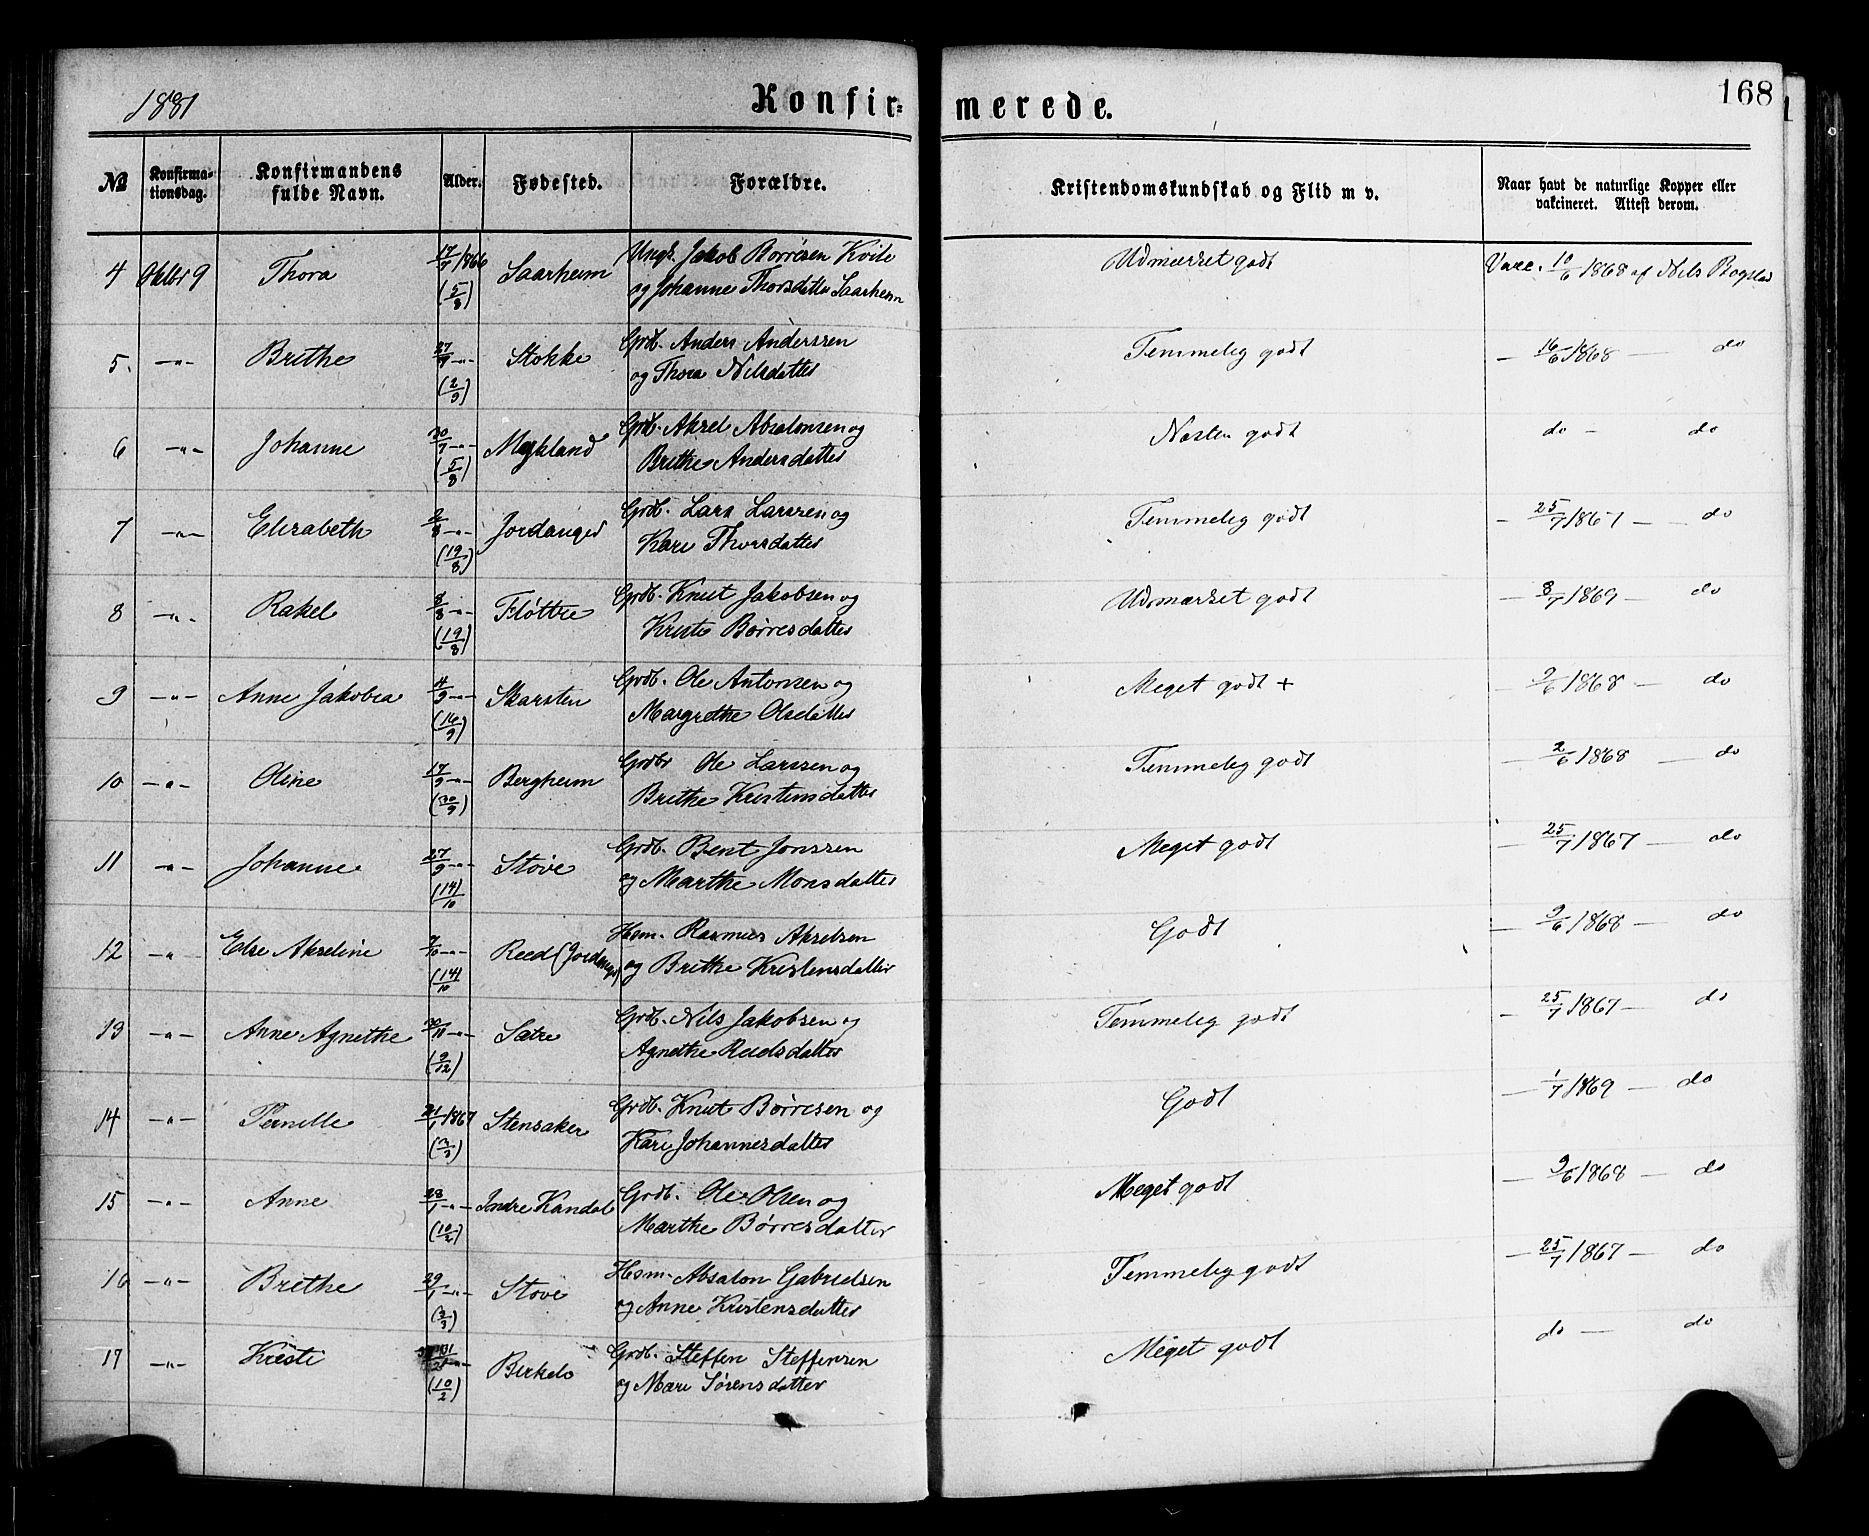 1881 Konfirmerede. 168
№ Konfirmationsdag. Konfirmandens fulde Navn. Alder. Fødested. Forældre. Kristendomskundskab og Flid m v. Naar havt de naturlige Kopper eller vakcineret. Attest derom.
4 Oktbr 9 Thora 17/7 1866 Saarheim Ungk. Jakob Børresen Kvile Udmærket godt Vacc. 10/6 1868 af Nils Bogstad
(5/8) og Johanne Thorsdatter Saarheim
5. -"- Brithe 27/7 -"- Stokke Grdb. Anders Anderssen Temmelig godt — 16/6 1868 — do
(2/9) og Thora Nilsdatter
6 -"- Johanne 30/7 -"- Mykland Grdb. Aksel Absalonsen og Næsten godt do — do
(5/8) Brithe Andersdatter
7 -"- Elisabeth 2/8 -"- Jordanger Grdb. Lars Larssen og Temmelig godt — 25/7 1867 — do
(19/8) Kari Thorsdatter
8 -"- Rakel 8/8 -"- Fløttre Grdb. Knut Jakobsen og Udmærket godt — 8/7 1869 — do
(19/8) Kristi Børresdatter
9 -"- Anne Jakobea 4/9 -"- Skarsten Grdb. Ole Antonsen og Meget godt + — 9/6 1868 — do
(16/9) Margrethe Olsdatter
10 -"- Oline 17/9 -"- Bergheim Grdbr Ole Larssen og Temmelig godt — 2/6 1868 — do
(30/9) Brithe Kristensdatter
11 -"- Johanne 27/9 -"- Støve Grdb. Bent Jonssen Meget godt — 25/7 1867 — do
(14/10) og Marthe Monsdatter
12 -"- Else Akseline 7/10 -"- Reed (Jordanger) Hsm. Rasmus Akselsen Godt — 9/6 1868 — do
(14/10) og Brithe Kristensdatter
13 -"- Anne Agnethe 30/11 -"- Sætre Grdb. Nils Jakobsen og Temmelig godt — 25/7 1867 — do
(9/12) Agnethe Rudsdatter
14 -"- Pernille 21/1 1867 Stensaker Grdb. Knut Børresen og Godt — 1/7 1869 — do
(3/3) Kari Johannesdatter
15 -"- Anne 28/1 -"- Indre Kandal Grdb. Ole Olsen og Meget godt — 9/6 1868 — do
(10/2) Marthe Børresdatter
16 -"- Brithe 29/1 -"- Støve Hsm. Absalon Gabrielsen Temmelig godt — 25/7 1867 — do
(3/3) og Anne Kristensdatter
17 -"- Kristi -"- Birkelo Grdb. Steffen Steffensen Meget godt do — do
(10/2) og Mari Sørensdatter